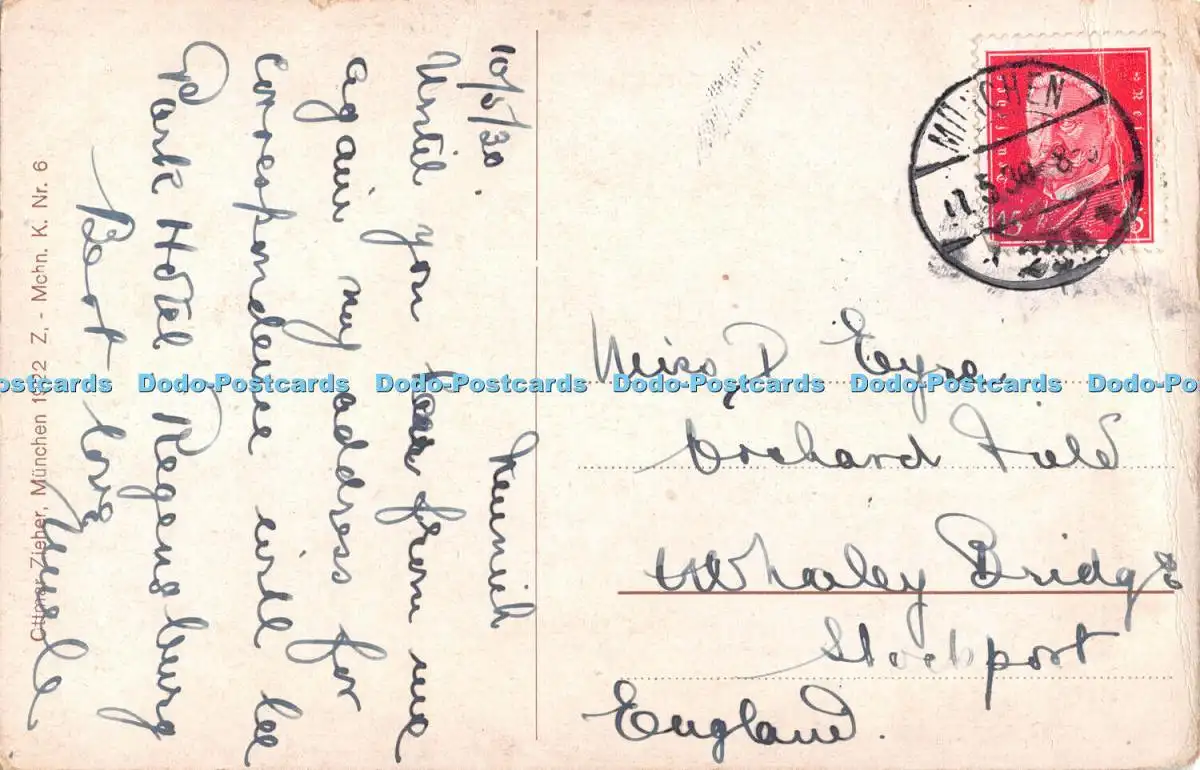 Munich
10/5/30.
Until you hear from me
again my address for
correspondence will be
Park Hotel Regensburg
Best love
Ottmar Zieher, München 1922 Z, - Mchn. K. Nr. 6
MÜNCHEN
11.5.30. 8
Deutsches Reich
15 15
Miss D Eyre.
Orchard Field
Whaley Bridge
Stockport
England.
Dodo-Postcards Dodo-Postcards Dodo-Postcards Dodo-Postcards Dodo-Postcards